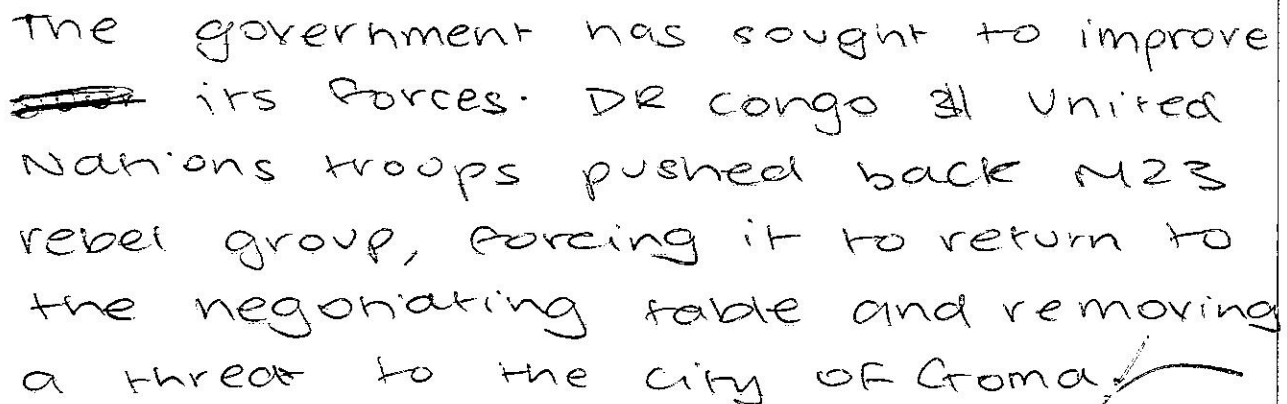 The government has sought to improve
its forces. DR Congo & United
Nations troops pushed back M23
rebel group, forcing it to return to
the negotiating table and removing
a threat to the city of Goma.